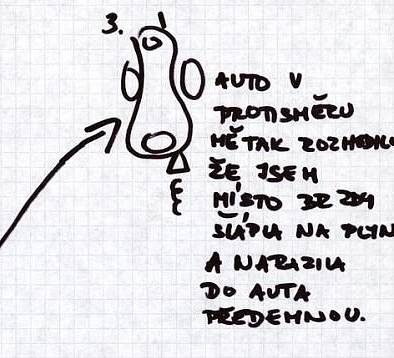 3.
AUTO V
PROTISMĚRU
MĚ TAK ROZHODILO
ŽE JSEM
MÍSTO BRZDY
ŠLÁPLA NA PLYN
A NARAZILA
DO AUTA
PŘEDEMNOU.